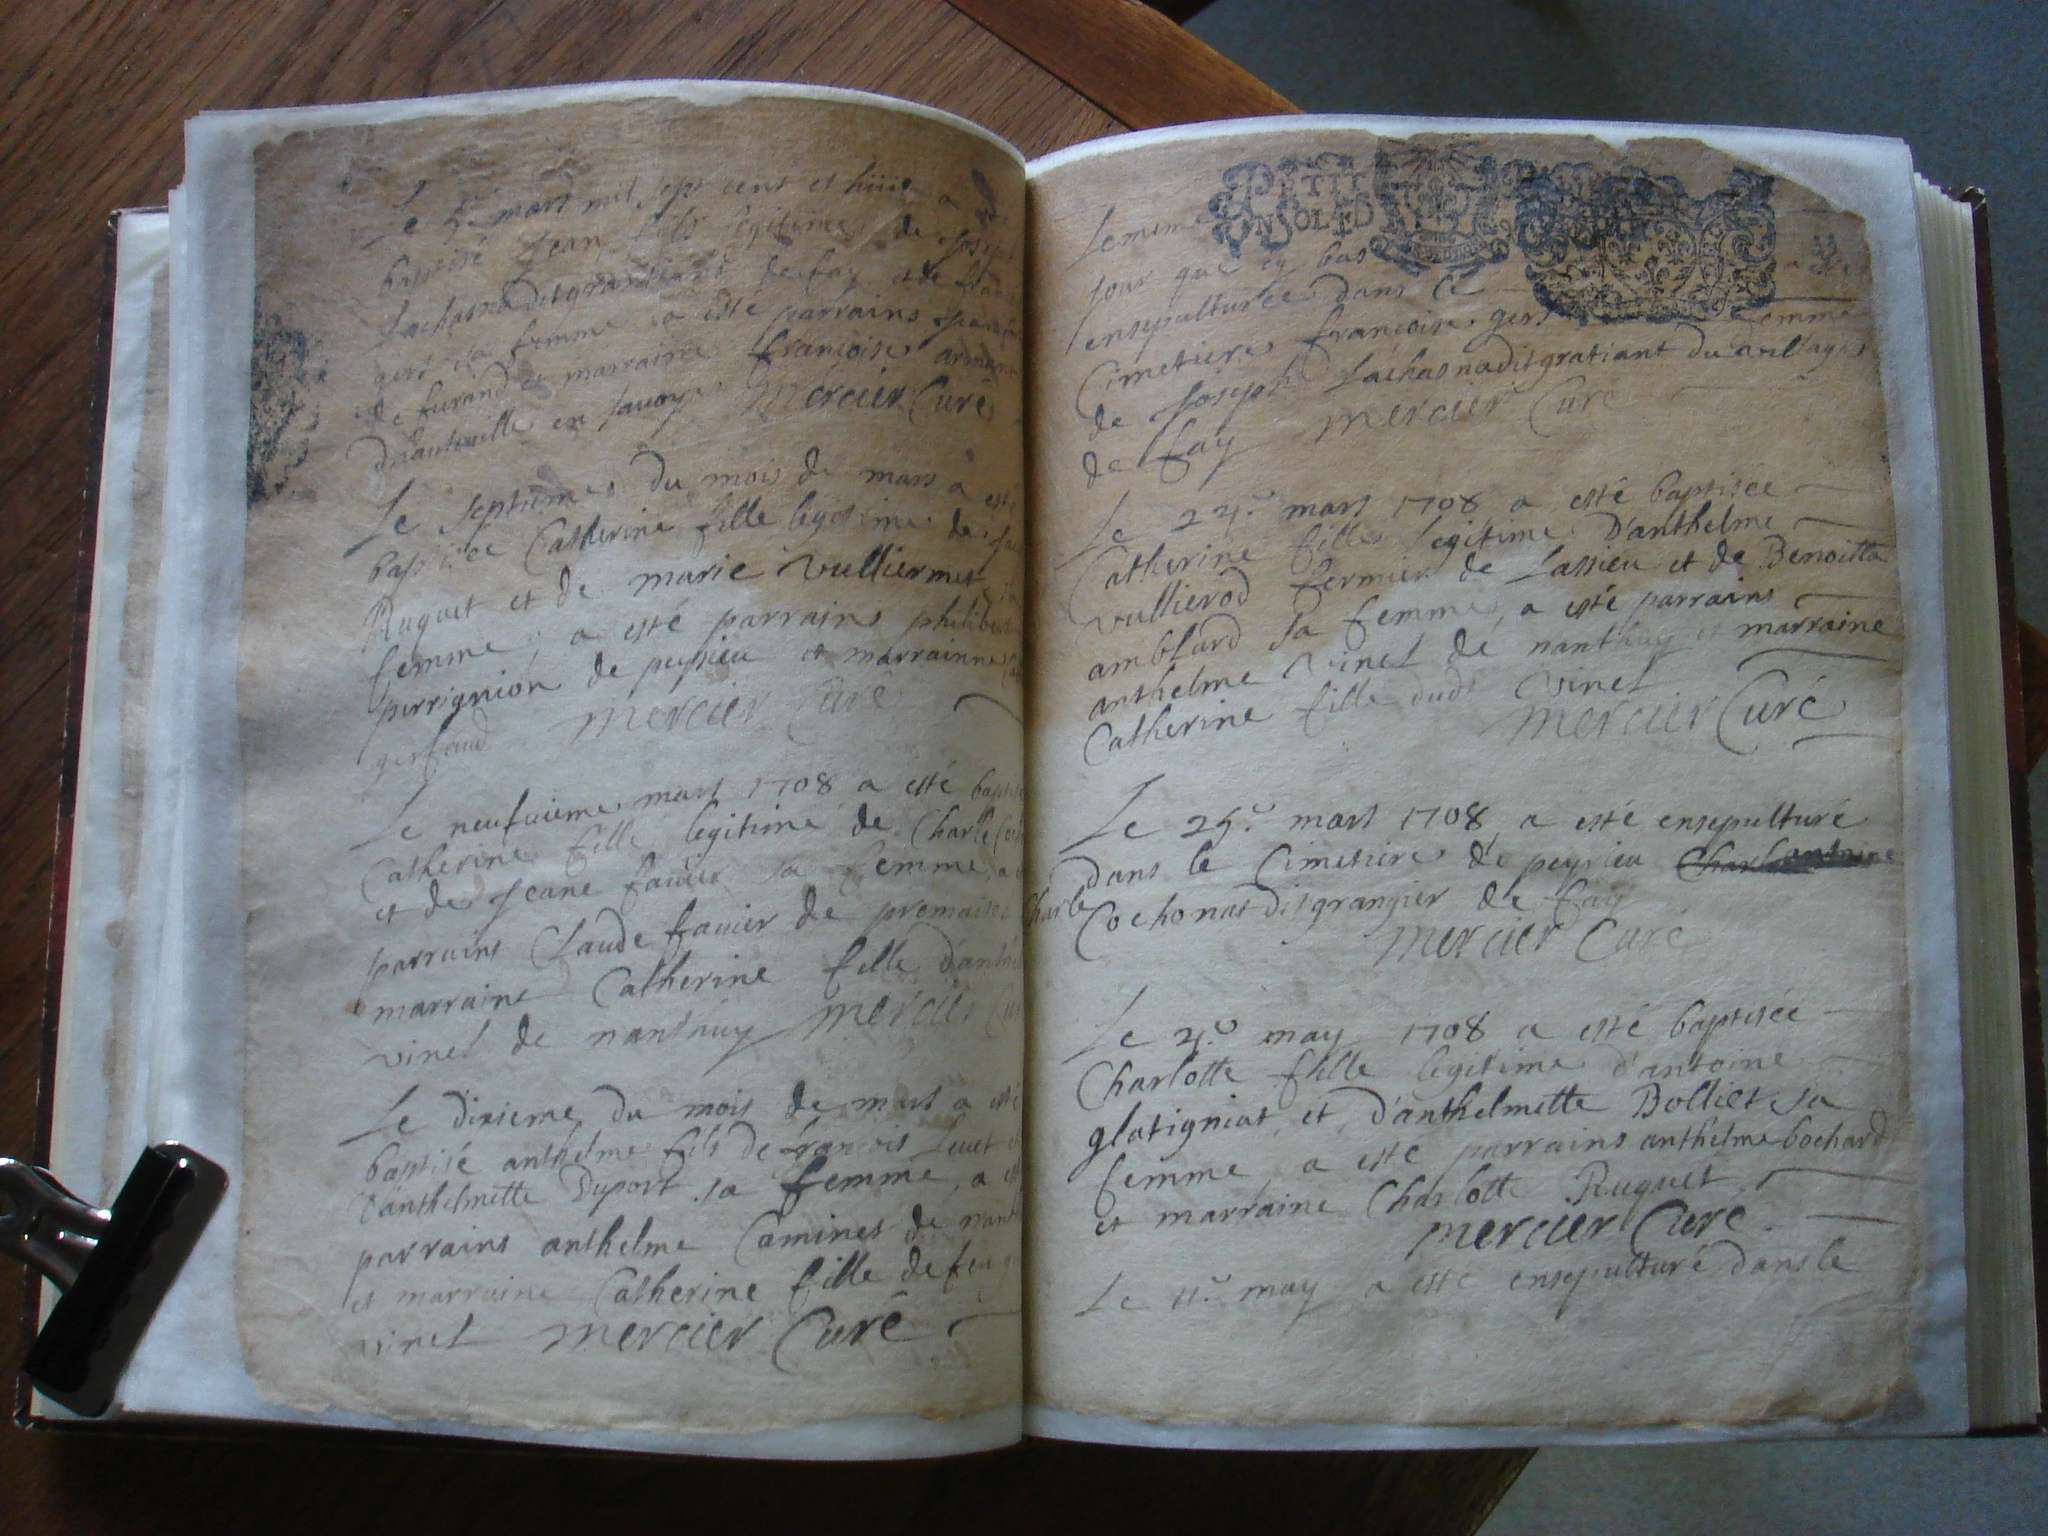 Le 5e mars mil sept cent et huit a
baptisé Jean fils legitime de Joseph
Lachasnadit gratiant de fay et de
gert sa femme a esté parrains
de furand et marraine françoise
d'hauteville en savoye Mercier Curé
Le septieme du mois de mars a esté
baptisée Catherine fille legitime de
Ruguet et de marie vulliermet sa
femme, a esté parrains philibert
perrignion de peysieu et marrainne
gerfaud mercier Curé
Le neufuieme mars 1708 a esté
Catherine fille legitime de Charle
et de Jeane fauier sa femme, a
parrains Claude fauier de premaisel
marraine Catherine fille
vinet de nantuuy mercier
Le dixieme du mois de mars a esté
baptisé anthelme fils de françois
d'anthelmette Duport sa femme, a
parrains anthelme Camines de
et marraine Catherine fille de feu
vinet mercier Curé
PETIT
EN SOL. ED
Le meme
jour que cy bas
ensepulturée dans Ce
Cimetiere françoise gert femme
de Joseph Lachasnadit gratiant du village
de fay mercier Curé
Le mars 1708 a esté baptisée
Catherine fille legitime D'anthelme
vullierod fermier de Lassieu et de Benoitta
amblard sa femme, a esté parrains
anthelme vinet de nanthuy et marraine
Catherine fille dudt vinet
mercier Curé
Le 25e mars 1708 a esté ensepulturé
dans le Cimetiere de peysieu antoine
Charle Cochonat dit grangier de fay
mercier Curé
Le may 1708 a esté baptisée
Charlotte fille legitime d'antoine
glatigniat, et d'anthelmette Bolliet sa
femme a esté parrains anthelme bochard
et marraine Charlotte Ruguet
mercier Curé
Le 11e may a esté ensepulturé dans le